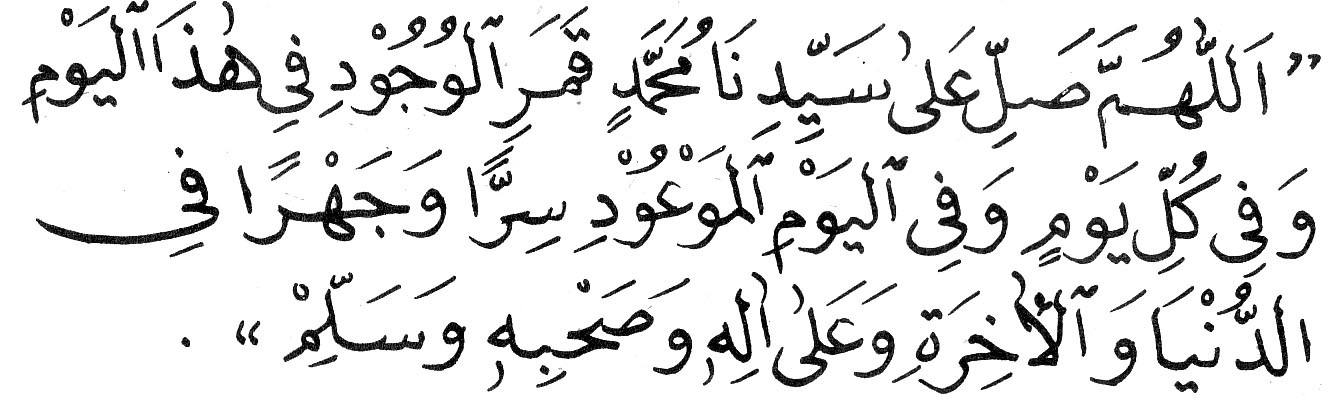 ” اَللّٰهُمَّ صَلِّ عَلٰى سَيِّدِنَا مُحَمَّدٍ قَمَرِ ٱلْوُجُوْدِ فِي هٰذَا ٱلْيَوْمِ
وَفِي كُلِّ يَوْمٍ وَفِي ٱلْيَوْمِ ٱلْمَوْعُوْدِ سِرًّا وَجَهْرًا فِي
الدُّنْيَا وَٱلْأٰخِرَةِ وَعَلٰى اٰلِهٖ وَصَحْبِهٖ وَسَلِّمْ “ .